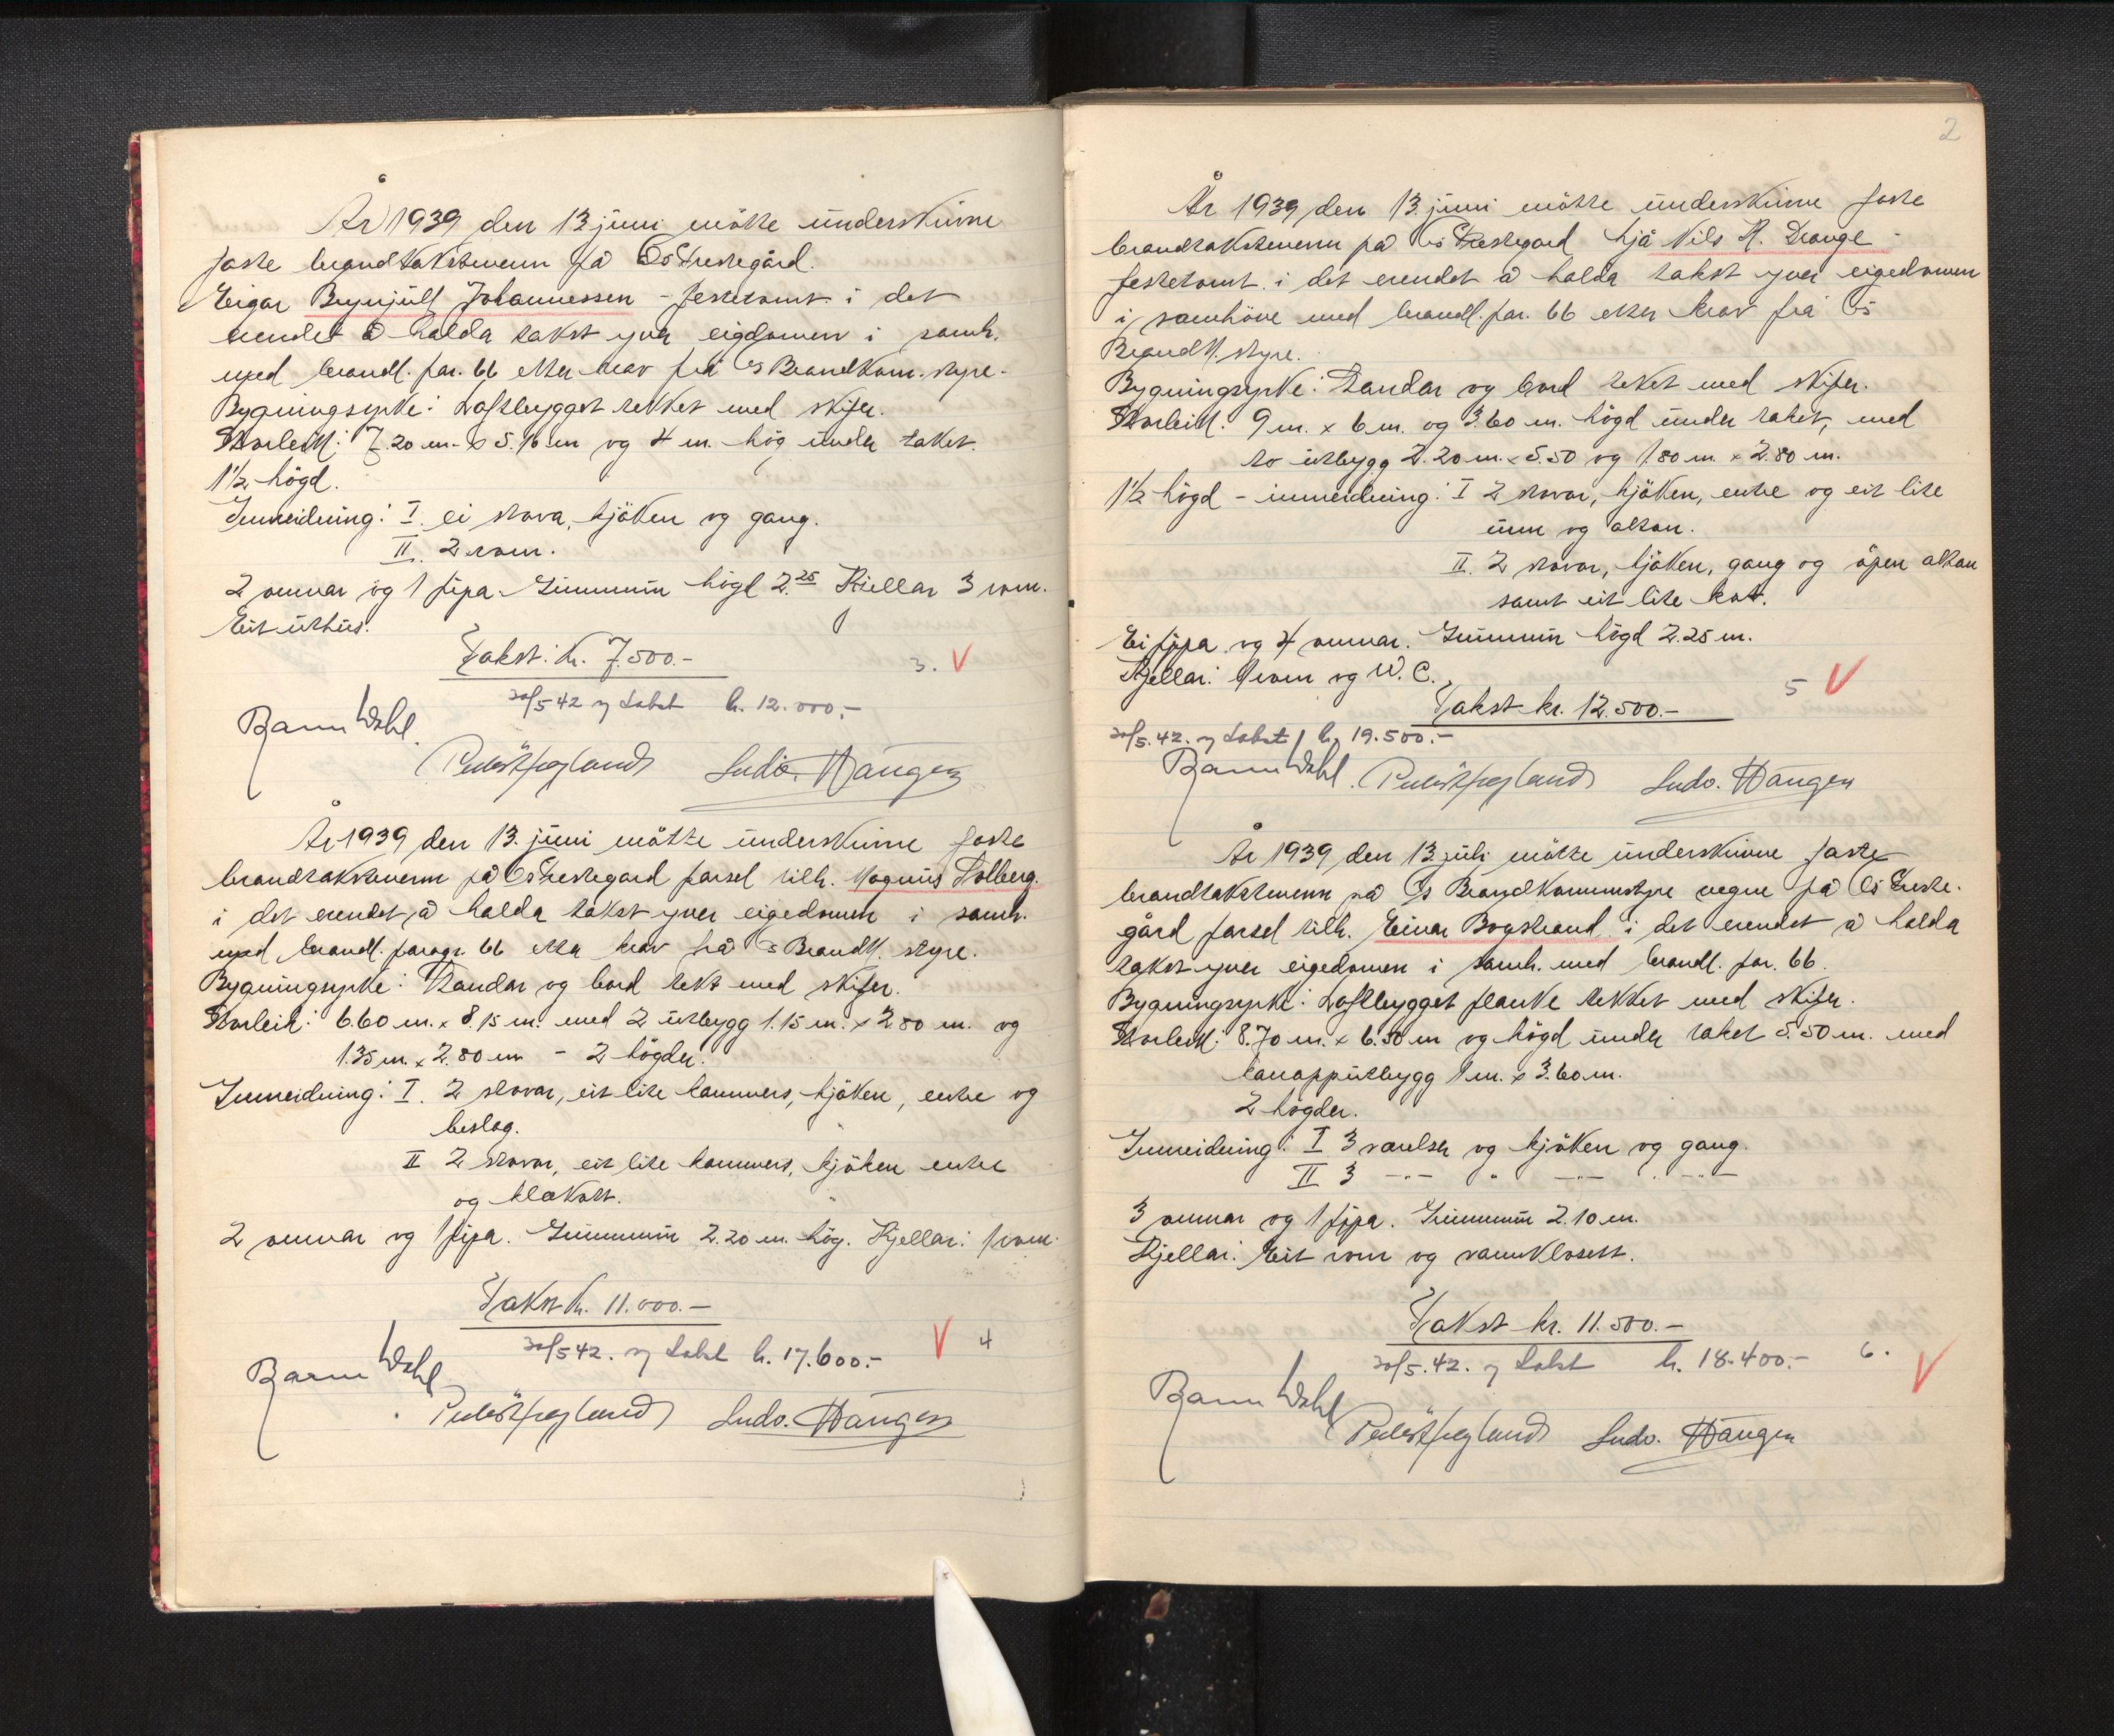 År 1939 den 13. juni møtte underskrivne
faste brandtakstmenn på Os Prestegård.
Eigar Brynjulf Johannessen - festetomt i det
erendet å halda takst yver eigdomen i samh.
med brandl. par. 66 etter krav frå Os Brandkom. styre.
Bygningsyrke: Loftbygget tekket med skifer.
Storleik: 7.20 m. x 5.10 m og 4 m. høg under taket.
1½ høgd.
Innreidning: I. ei stova, kjøken og gang.
II. 2 rom.
2 omnar og 1 pipa. Grunnmur høgd 2.25 Kjellar 3 rom.
Eit uthus.
Takst: kr. 7.500.-
3. V
30/5 42 ny takst kr. 12.000.-
Dahl
Ludv. Haugen
År 1939 den 13. juni møtte underskrivne faste
brandtakstmenn på Os Prestegard parsel tilh. Magnus Solberg.
i det erendet å halda takst yver eigedomen i samh.
med brandl. paragr. 66 etter krav frå Os Brandk. styre.
Bygningsyrke: Standar og bord tekt med skifer.
Storleik: 6.60 m. x 8.15 m. med 2 utbygg 1.15 m. x 2.80 m. og
1.35 m. x 2.80 m - 2 høgder.
Innreidning: I. 2 stovar, eit lite kammers, kjøken, entre og
beslag.
II 2 stovar, eit lite kammers, kjøken entre
og klækott.
2 omnar og 1 pipa. Grunnmur 2.20 m. høg. Kjellar: 1 rom.
Takst kr. 11.000.-
30/5 42. ny takst kr. 17.600.-
V 4
Dahl
Ludv. Haugen
2
År 1939 den 13. juni møtte underskrivne faste
brandtakstmenn på Os Prestegard hjå Nils A. Drange -
festetomt. i det erendet å halda takst yver eigedomen
i samhøve med brandl. par. 66 etter krav frå Os
Brandk. styre.
Bygningsyrke: Standar og bord tekt med skifer.
Storleik: 9 m. x 6 m. og 3.60 m. høgd under taket, med
to utbygg 2.20 m. x 5.50 og 1.80 m. x 2.80 m.
1½ høgd - innreidning: I 2 stovar, kjøken, entre og eit lite
rum og altan.
II. 2 stovar, kjøken, gang og open altan
samt eit lite kot.
Ei pipa og 4 omnar. Grunnmur høgd 2.25 m.
Kjellar: 1 rom og W.C.
5 V
Takst kr. 12.500.-
30/5.42. ny takst kr. 19.500.-
Dahl
Ludv. Haugen
År 1939 den 13 juli møtte underskrivne faste
brandtakstmenn på Os Brandkommstyre vegne på Os Preste-
gård parsel tilh. Einar Bogstrand i det erendet å halda
takst yver eigedomen i samh. med brandl. par. 66.
Bygningsyrke: Loftbygget planke tekket med skifer.
Storleik: 8.70 m. x 6.50 m og høgd under taket 5.50 m. med
karnapputbygg 1 m. x 3.60 m.
2 høgder.
Innreidning: I 3 værelser og kjøken og gang.
II 3 -"- " -"- . -"-
3 omnar og 1 pipa. Grunnmur 2.10 m.
Kjellar: Eit rom og vannklosett.
Takst kr. 11.500.-
30/5.42. ny takst kr. 18.400.-
6. V
Dahl
Ludv. Haugen